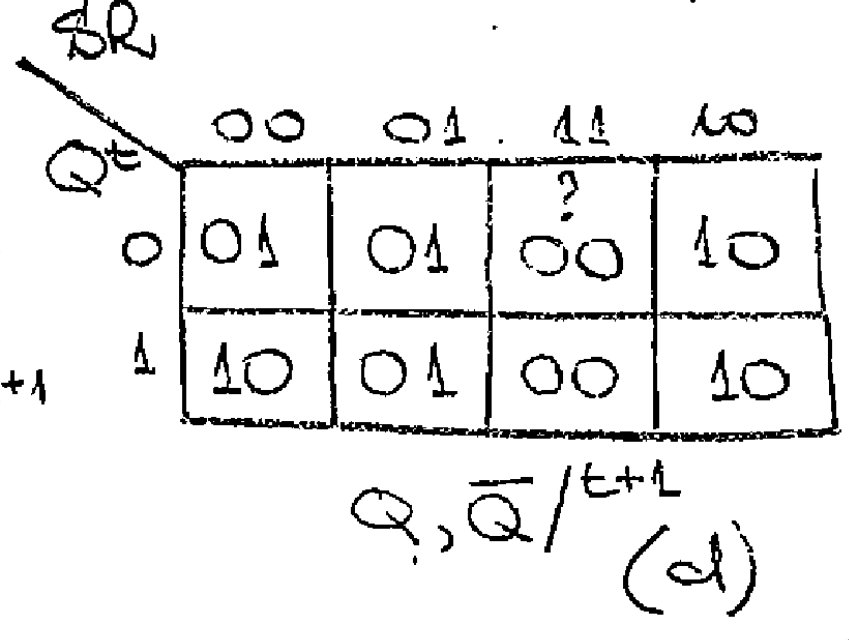 SR
00 01 11 10
Q^t
?
0 01 01 00 10
1 10 01 00 10
+1
Q, Q̅/^t+1
(d)